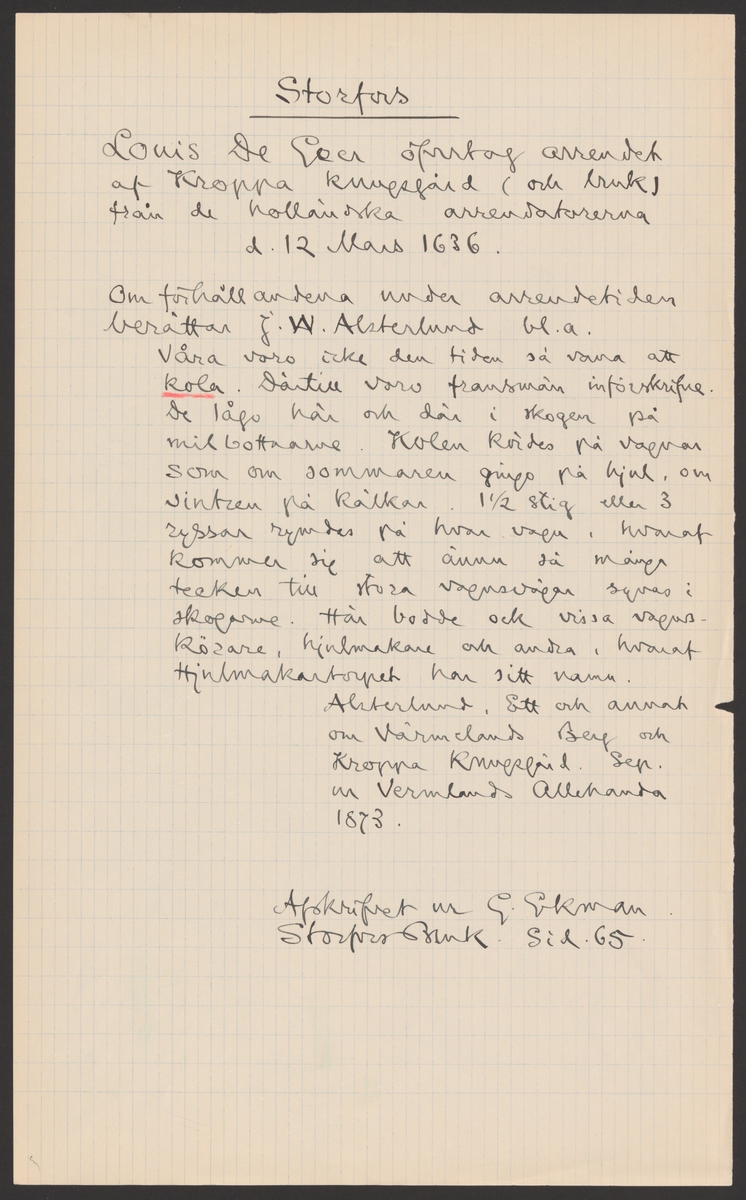 Storfors
Louis De Geer öfvertog arrendet
af Kroppa kungsgård (och bruk)
från de holländska arrendatorerna
d. 12 Mars 1636.
Om förhållandena under arrendetiden
berättar J. W. Alsterlund bl. a.
Våra voro icke den tiden så vana att
kola. Därtill voro fransmän införskrifne.
De lågo här och där i skogen på
milbottnarne. Kolen kördes på vagnar
som om sommaren gingo på hjul, om
vintren på kälkar. 1½ stig eller 3
ryssar rymdes på hvar vagn, hvaraf
kommer sig att ännu så många
tecken till stora vagnsvägar synas i
skogarne. Här bodde ock vissa vagns-
körare, hjulmakare och andra, hvaraf
Hjulmakartorpet har sitt namn.
Alsterlund, Ett och annat
om Värmelands Berg och
Kroppa Kungsgård. Sep.
ur Vermlands Allehanda
1873.
Afskrifvet ur G. Ekman
Storfors Bruk. Sid. 65.